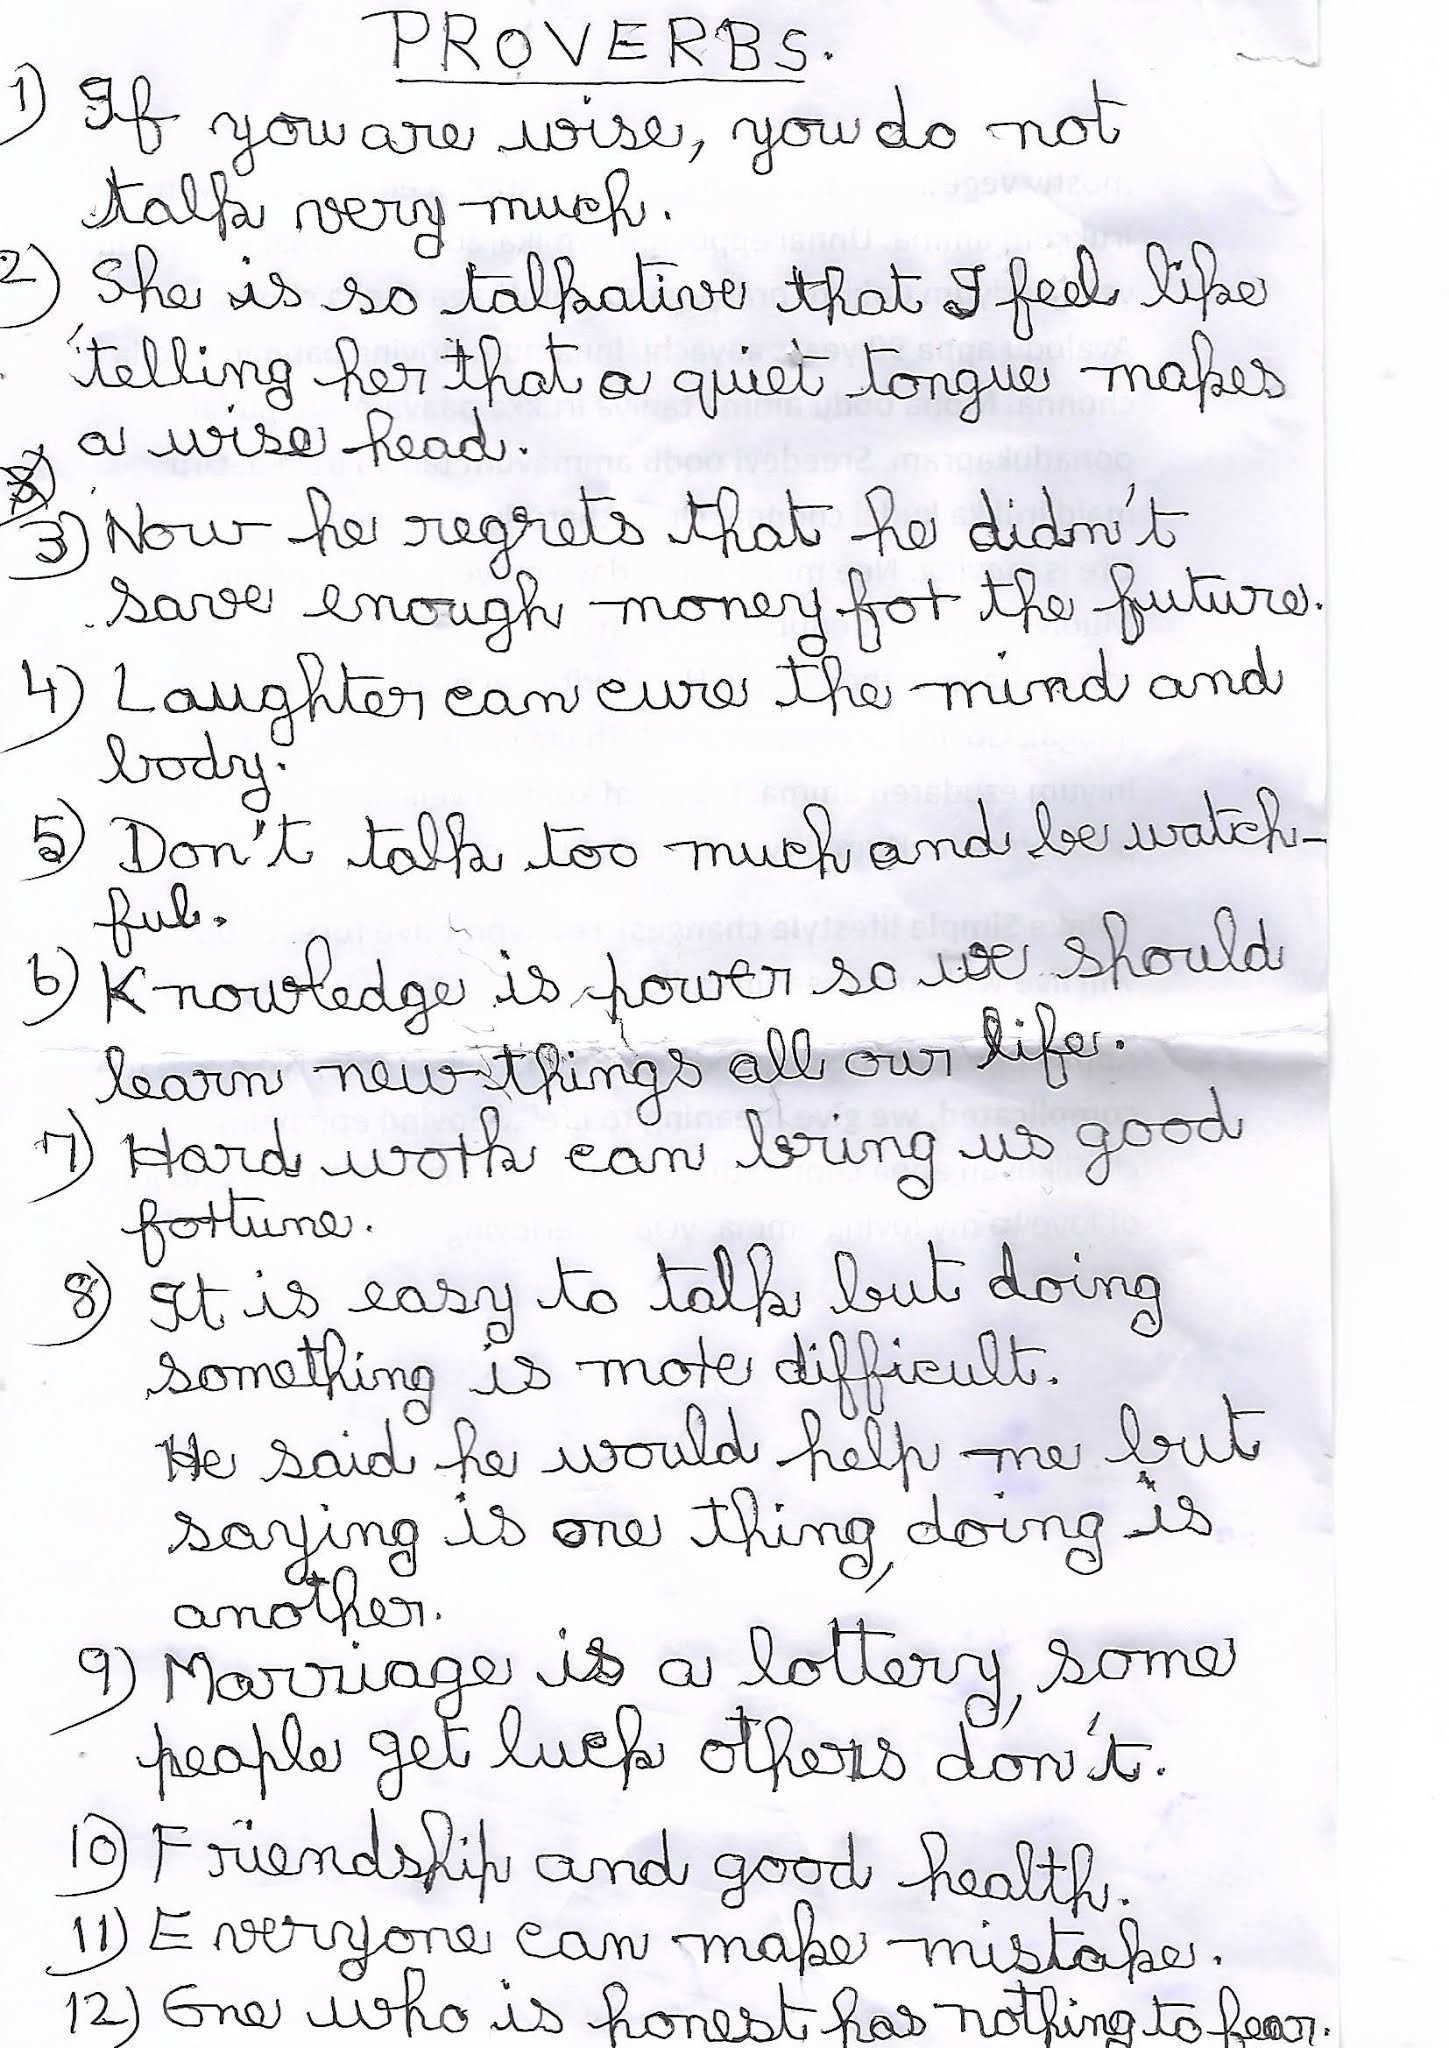 PROVERBS.
1) If you are wise, you do not
talk very much.
2) She is so talkative that I feel like
telling her that a quiet tongue makes
a wise head.
3) Now he regrets that he didn't
save enough money for the future.
4) Laughter can cure the mind and
body.
5) Don't talk too much and be watch-
ful.
6) Knowledge is power so we should
learn new things all our life.
7) Hard work can bring us good
fortune.
8) It is easy to talk but doing
something is more difficult.
He said he would help me but
saying is one thing, doing is
another.
9) Marriage is a lottery, some
people get luck others don't.
10) Friendship and good health.
11) Everyone can make mistake.
12) One who is honest has nothing to fear.